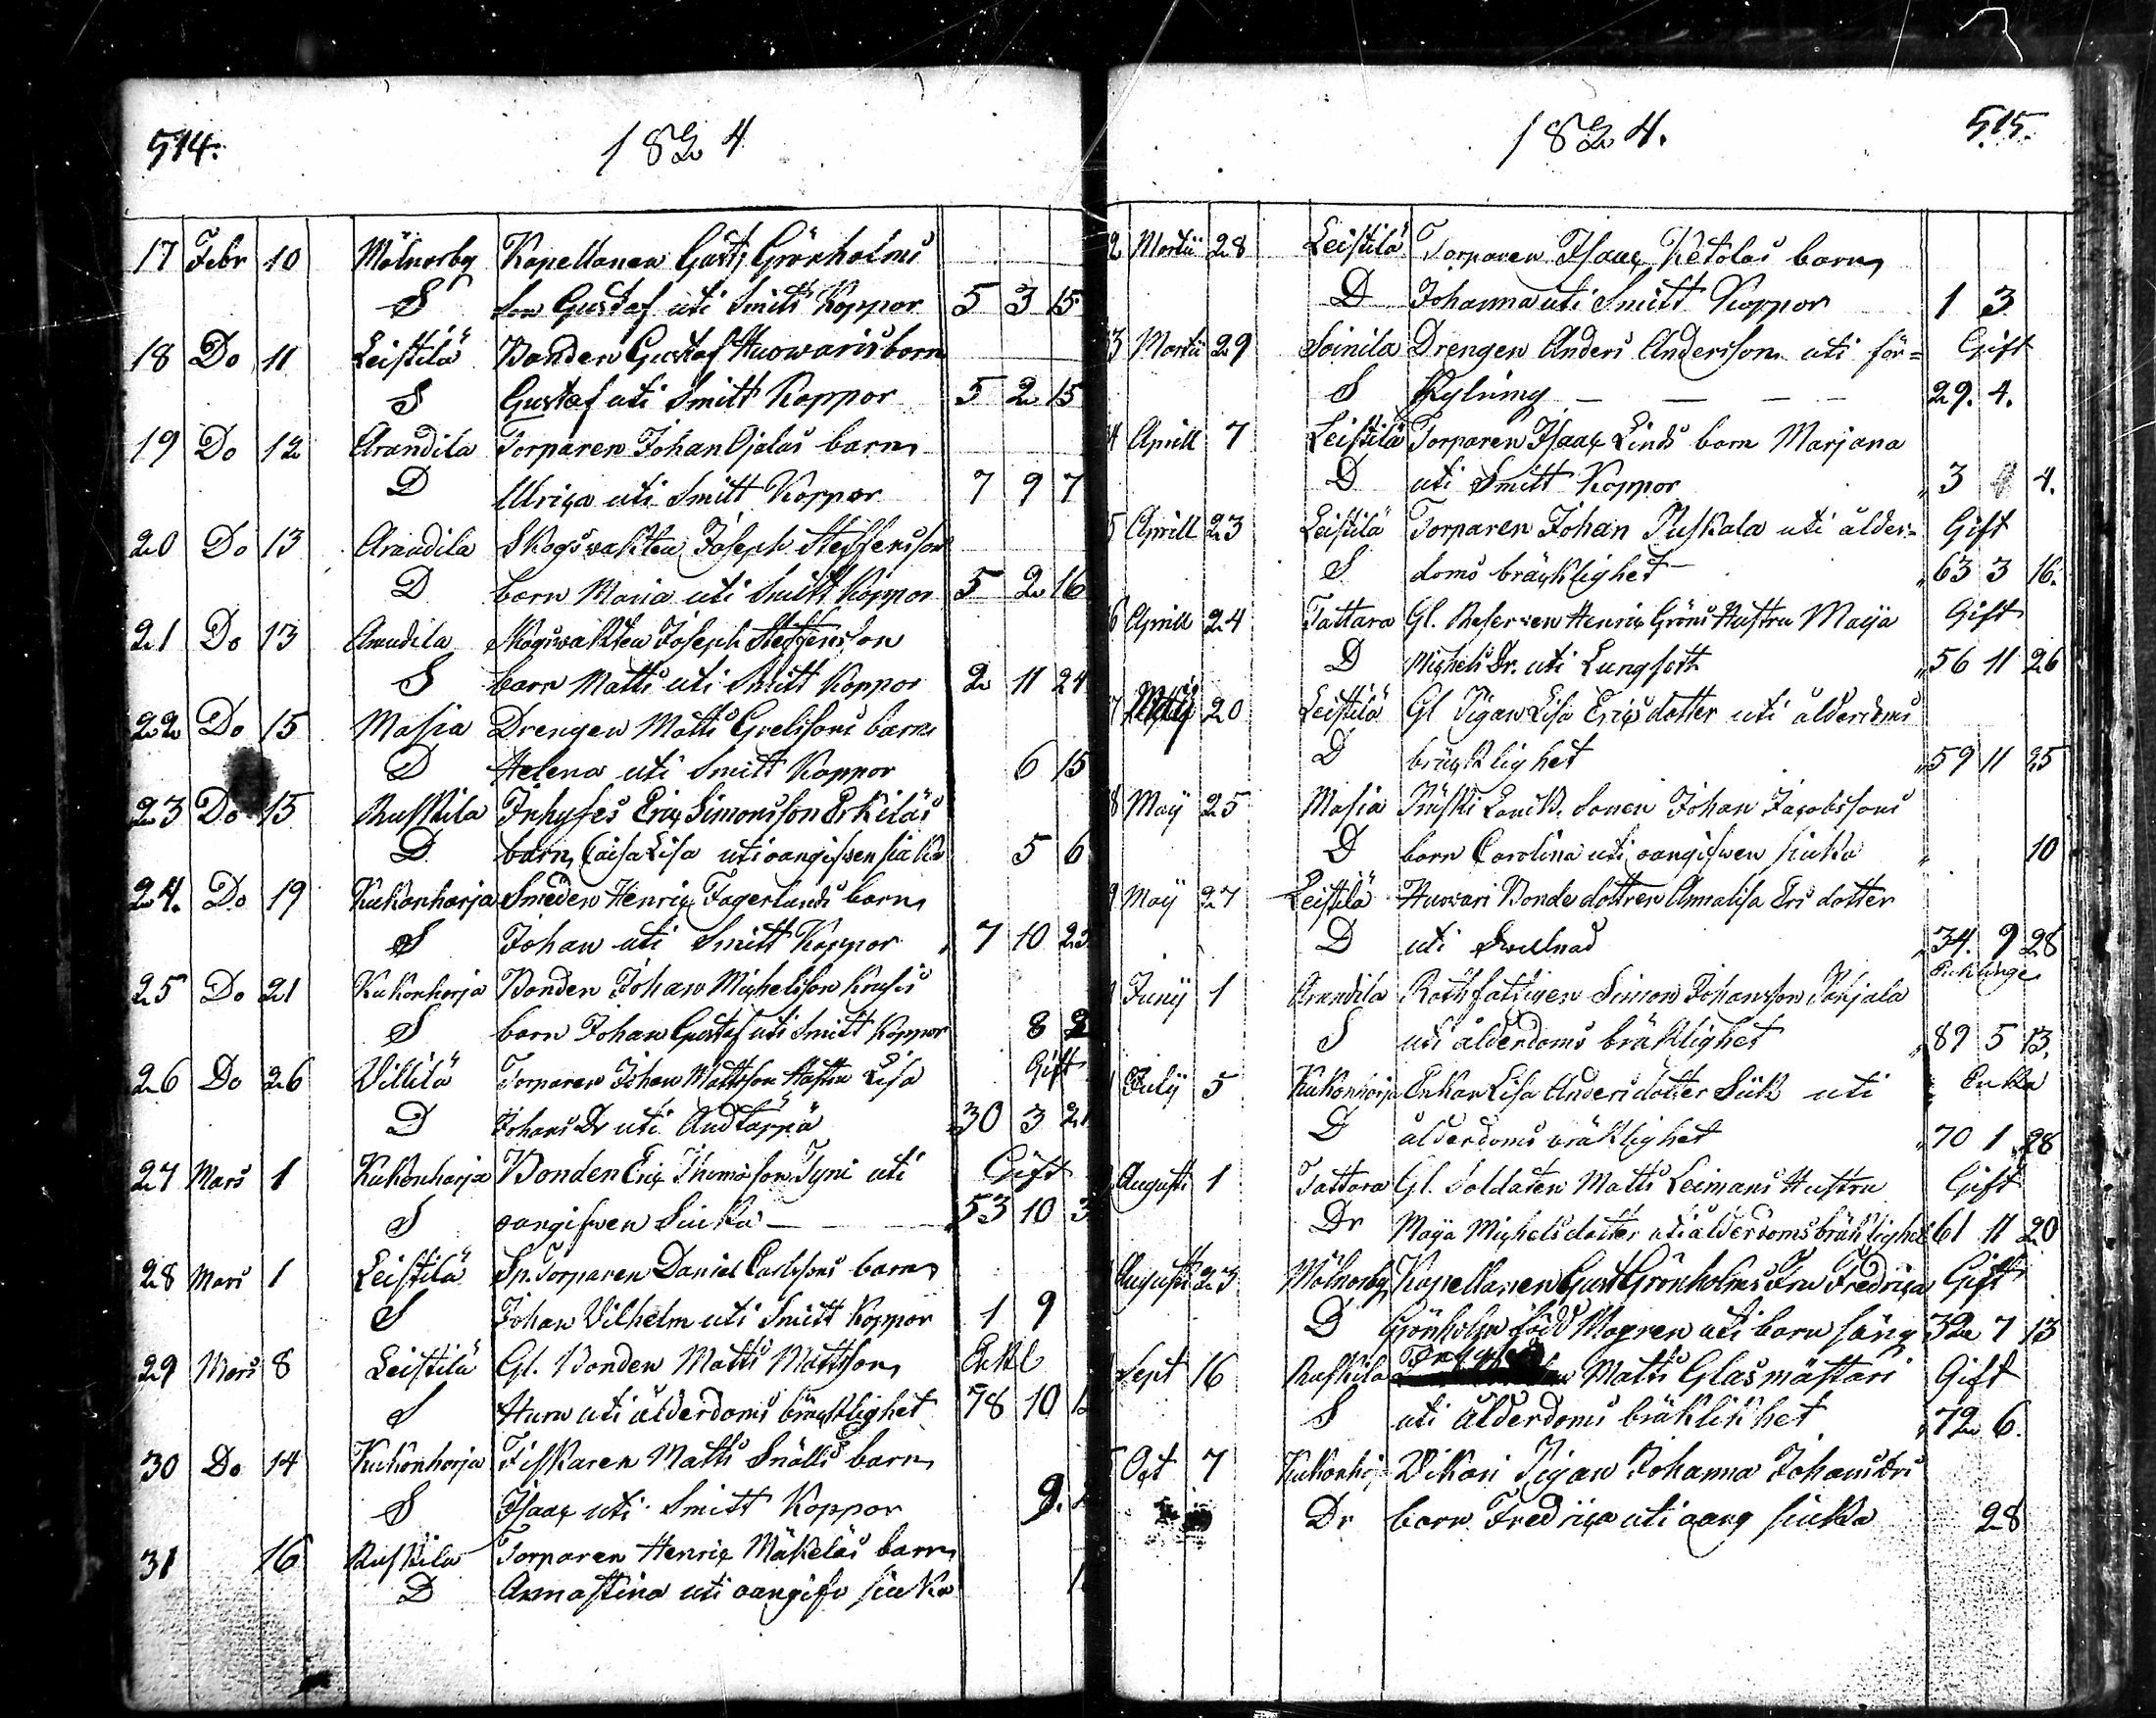 514.
1824
17 Febr 10 Mölnorby Kapellanen Gust, Grönholms
S son Gustaf uti Smitt Koppor 5 3 15
18 Do 11 Leistilä Bonden Gustaf Huowaris barn
S Gustaf uti Smitt Koppor 5 2 15
19 Do 12 Arandila Torparen Johan Ojalas barn
D Ulrica uti Smitt Koppor 7 9 7
20 Do 13 Arandila Skogswakten Joseph Steffensson
D barn Maria uti Smitt Koppor 5 2 16
21 Do 13 Arandila Skogswakten Joseph Steffensson
S barn Matts uti Smitt Koppor 2 11 24
22 Do 15 Masia Drengen Matts Grelssons barn
D Helena uti Smitt Koppor 6 15
23 Do 15 Ruskila Inhyses Eric Simonsson Erkiläs
D barn Caisa Lisa uti oangifwen siuka 5 6
24. Do 19 Kukonharja Smeden Henric Fagerlunds barn
S Johan uti Smitt Koppor 7 10 23
25 Do 21 Kukonharja Bonden Johan Michelsson
S barn Johan Gustaf uti Smitt Koppor 8
26 Do 26 Villilä Torparen Johan Mattsson Hustru Lisa Gift
D Johans Dr uti Andtäppa 30 3 21
27 Mars 1 Kukonharja Bonden Eric Thomasson Tyni uti Gift
S oangifwen Siuka 53 10 3
28 Mars 1 Leistilä Sp. Torparen Daniel Carlssons barn
S Johan Vilhelm uti Smitt Koppor 1 9
29 Mars 8 Leistilä Gl. Bonden Matts Mattsson Enkl
S uti ålderdoms bräcklighet 78 10
30 Do 14 Kukonharja Fiskaren Matts Snälls barn
S Isaac uti Smitt Koppor 9.
31 16 Ruskila Torparen Henric Mäkeläs barn
D Annastina uti oangifv siuka
1824.
515.
2 Martii 28 Leistilä Torparen Isaac Ketolas barn
D Johanna uti Smitt Koppor 1 3
3 Martii 29 Soinila Drengen Anders Andersson uti för= Gift
S Kylning 29. 4.
4 Aprill 7 Leistilä Torparen Isaac Linds barn Marjana
D uti Smitt Koppor 3 4.
5 Aprill 23 Leistilä Torparen Johan Puskala uti ålder= Gift
S doms bräcklighet 63 3 16.
6 Aprill 24 Tattara Gl. Reserven Henric Gröns Hustru Maija Gift
D Michels Dr. uti Lungsott 56 11 26
7 Maij 20 Leistilä Gl Pigan Lisa Ericsdotter uti ålderdoms
D bräcklighet 59 11 25
8 May 25 Masia Sonen Johan Jacobssons
D barn Carolina uti oangifwen siuka 10
9 May 27 Leistilä Huovari Bonde dottren Annalisa Ers dotter
D uti Swullnad 34. 9 28
Junij 1 Arandila Rothfattigen Simon Johansson Pohjala Enklinge
S uti ålderdoms bräklighet 89 5 13.
Julij 5 Kukonharja Enkan Lisa Andersdotter Siik uti Enka
D ålderdoms bräklighet 70 1 28
Augusti 1 Tattara Gl. Soldaten Matts Leimans Hustru Gift
Dr Maija Michelsdotter uti ålderdoms bräklighet 61 11 20
Augusti 23 Mölnorby Kapellanen Gust Grönholms Fru Fredrica Gift
D Grönholm född Mogren uti barn säng 32 7 13
Sept 16 Ruskila Matts Glasmästari Gift
S uti ålderdoms bräklikhet 72 6.
Oct 7 Kukonhj. Vikari Pigan Johanna Johansdrs
Dr barn Fredrica uti oang siuka 28